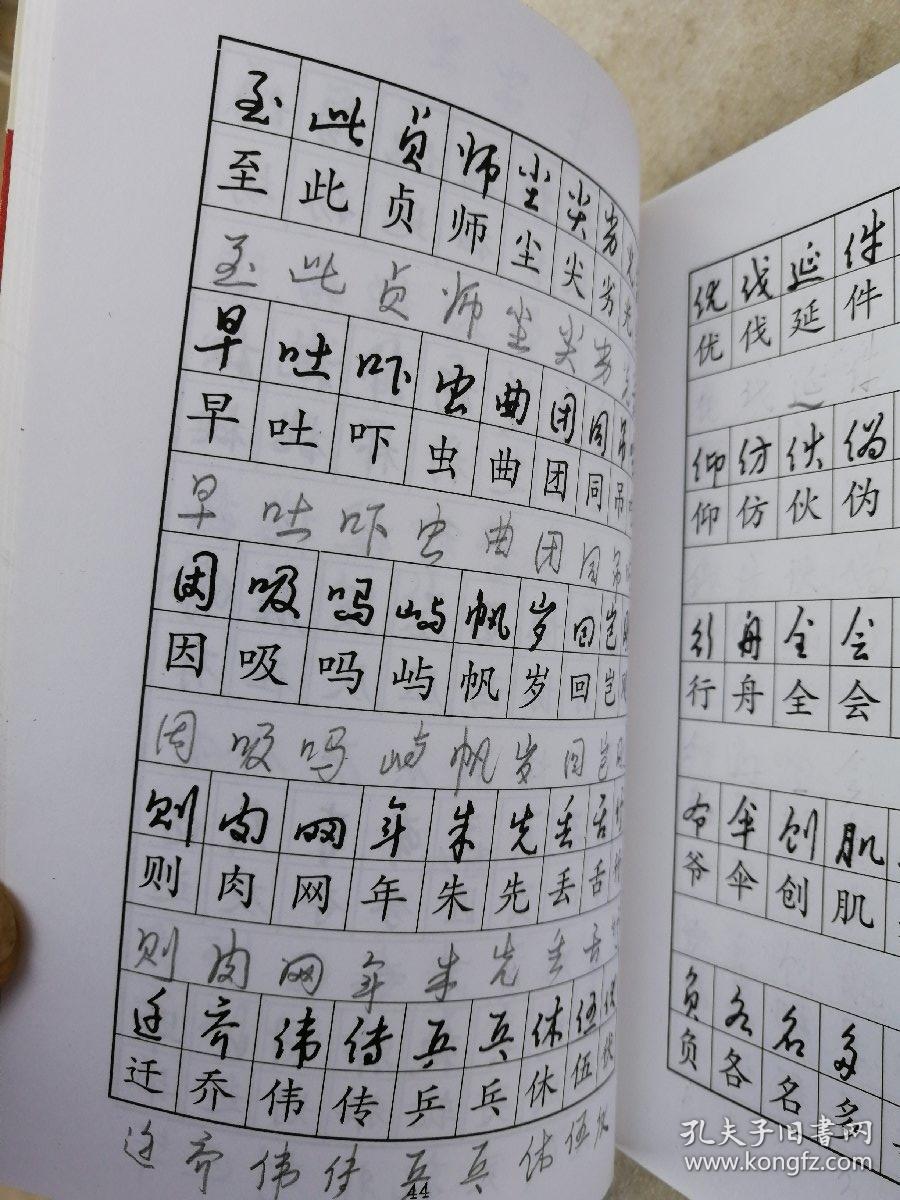 至此贞师尘尖劣
至此贞师尘尖劣
至此贞师尘尖劣
早吐吓虫曲团同吊
早吐吓虫曲团同吊
早吐吓虫曲团同吊
因吸吗屿帆岁回岂
因吸吗屿帆岁回岂
因吸吗屿帆岁回岂
则肉网年朱先丢舌
则肉网年朱先丢舌
则肉网年朱先丢舌
迁乔伟传乒乓休伍
迁乔伟传乒乓休伍
迁乔伟传乒乓休伍
44
优伐延件
优伐延件
仰仿伙伪
仰仿伙伪
行舟全会
行舟全会
爷伞创肌
爷伞创肌
负各名多
负各名多
孔夫子旧书网
www.kongfz.com